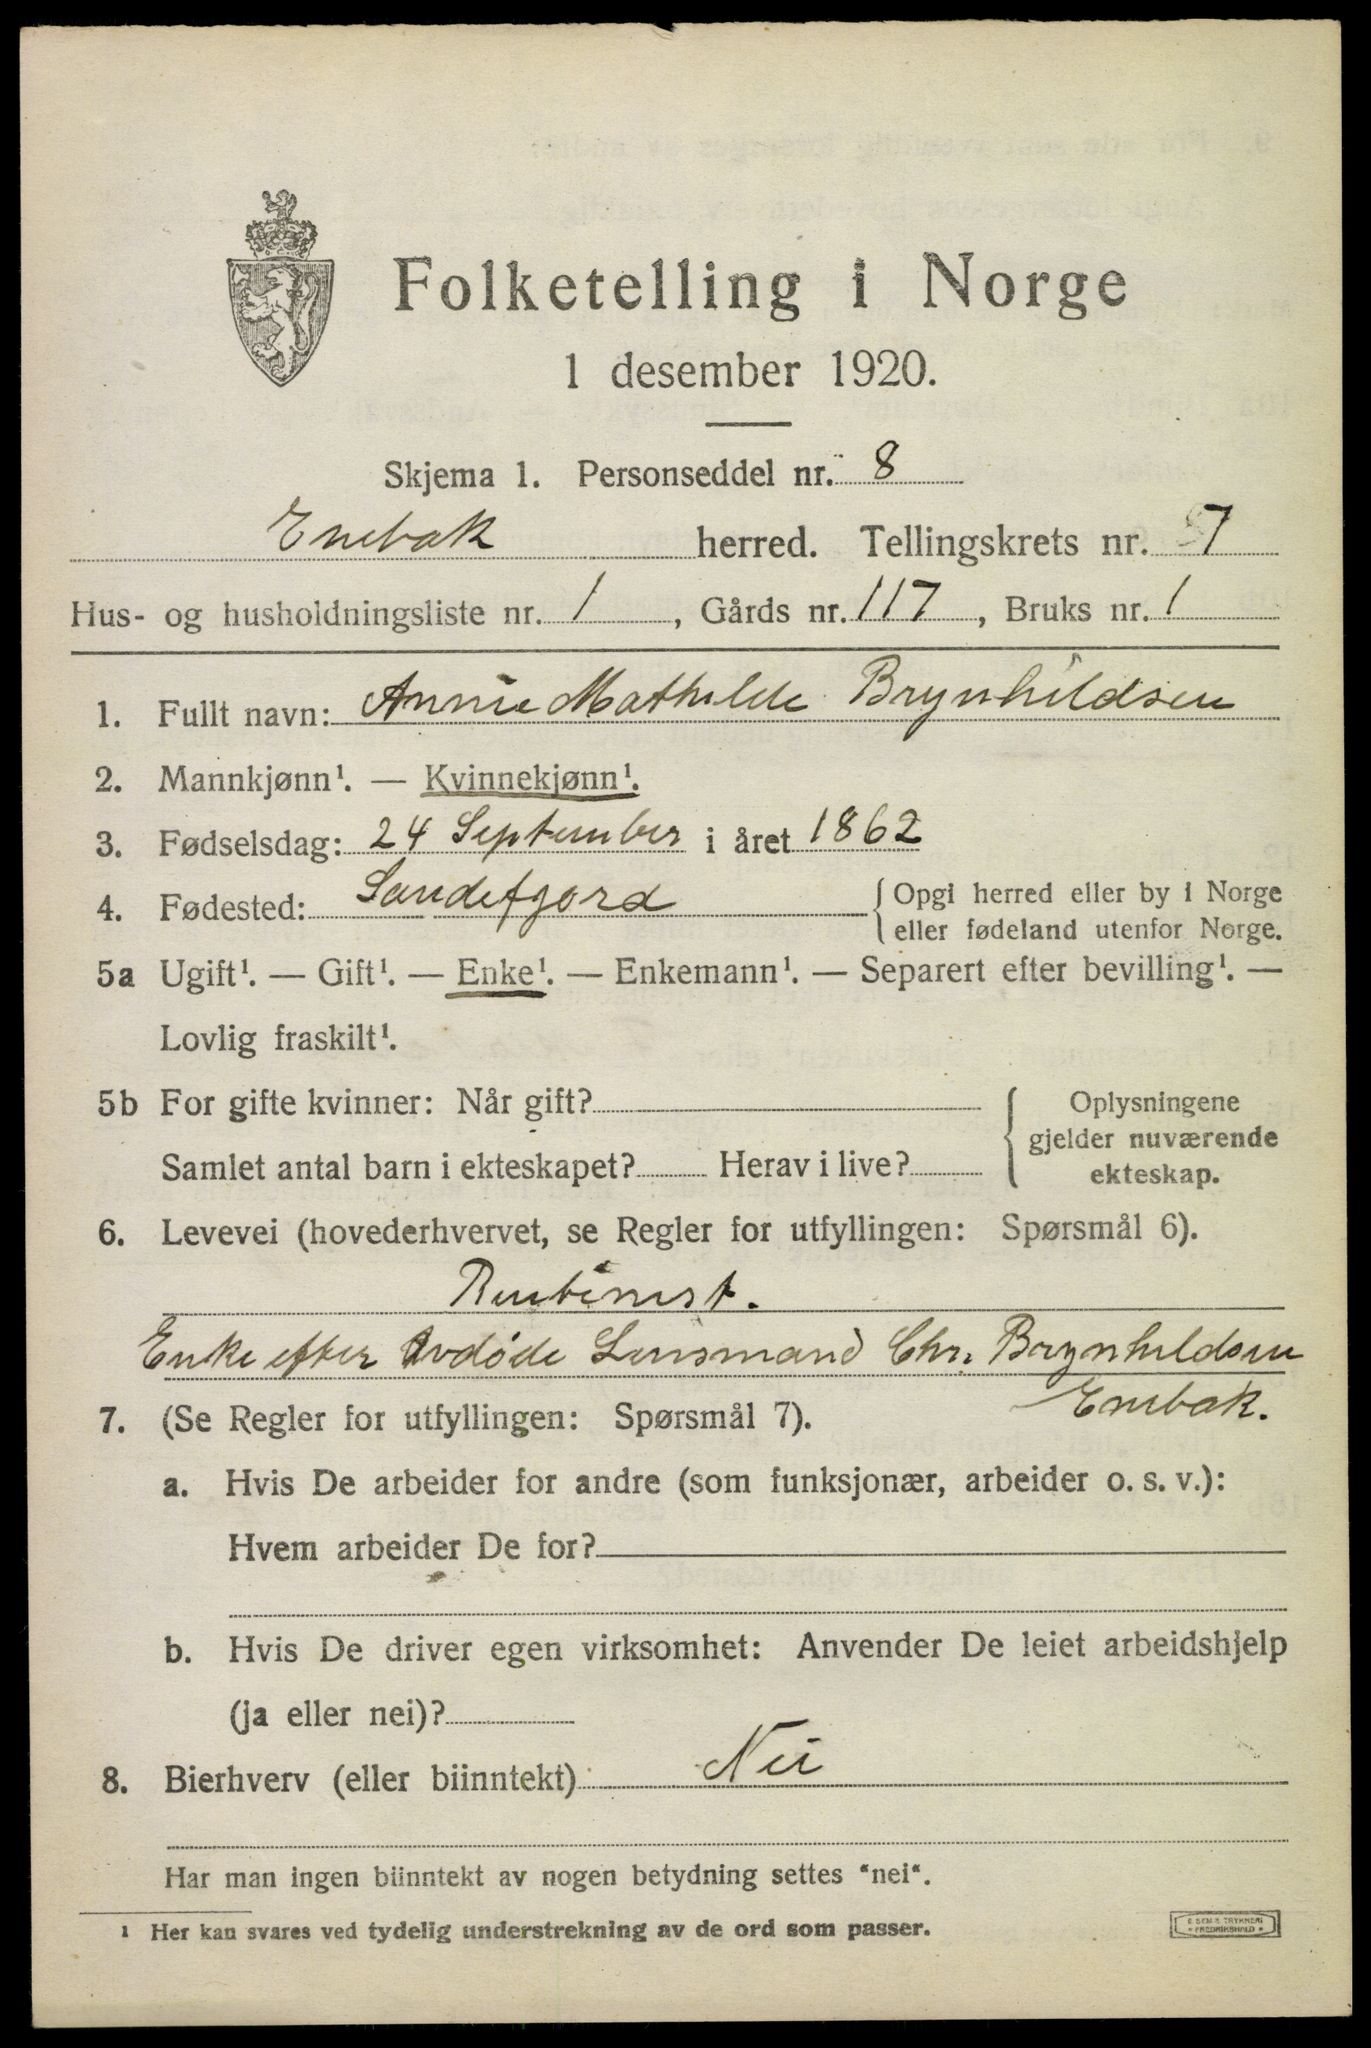 Folketelling i Norge
1 desember 1920.
Skjema 1. Personseddel nr. 8
Enebak herred. Tellingskrets nr. 7
Hus- og husholdningsliste nr. 1, Gårds nr. 117, Bruks nr. 1
1. Fullt navn: Annie Mathilde Brynhildsen
2. Mannkjønn¹. — Kvinnekjønn¹.
3. Fødselsdag: 24 September i året 1862
4. Fødested: Sandefjord {Opgi herred eller by i Norge
eller fødeland utenfor Norge.
5a Ugift¹. — Gift¹. — Enke¹. — Enkemann¹. — Separert efter bevilling¹. —
Lovlig fraskilt¹.
5b For gifte kvinner: Når gift? { Oplysningene
gjelder nuværende
Samlet antal barn i ekteskapet? Herav i live?
ekteskap.
6. Levevei (hovederhvervet, se Regler for utfyllingen: Spørsmål 6).
Rentenist.
Enke efter Avdøde Lensmand Chr. Brynhildsen
Enebak.
7. (Se Regler for utfyllingen: Spørsmål 7).
a. Hvis De arbeider for andre (som funksjonær, arbeider o. s. v.):
Hvem arbeider De for?
b. Hvis De driver egen virksomhet: Anvender De leiet arbeidshjelp
(ja eller nei)?
8. Bierhverv (eller biinntekt) Nei
Har man ingen biinntekt av nogen betydning settes "nei".
¹ Her kan svares ved tydelig understrekning av de ord som passer.
E. SEM'S TRYKKERI
FREDRIKSHALD